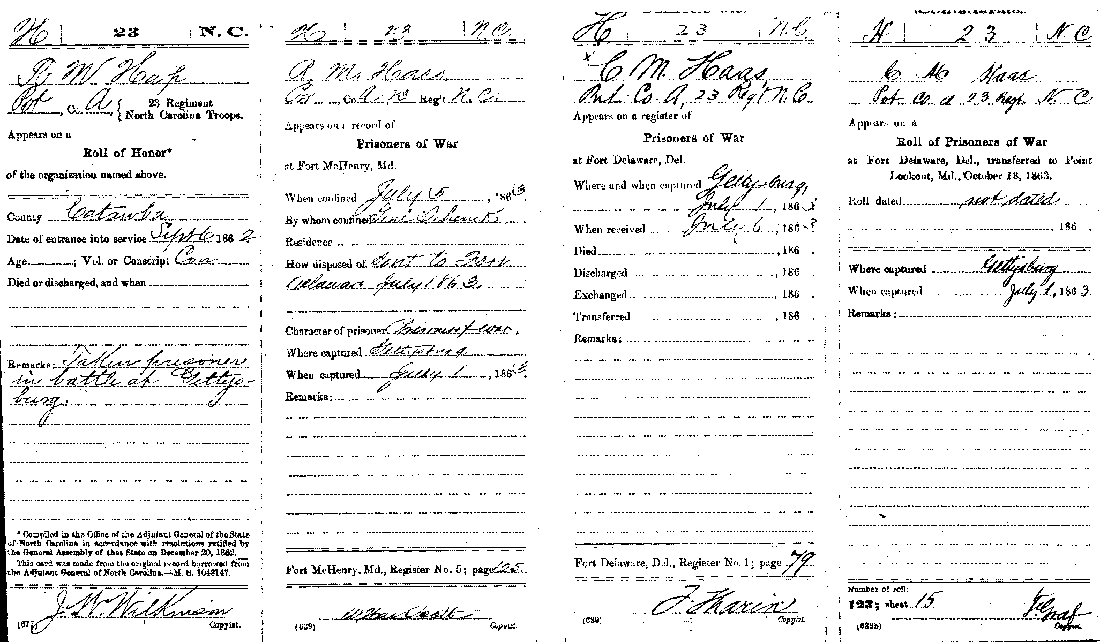 H 23 N. C.
Hap
Pvt, Co. A 23 Regiment
North Carolina Troops.
Appears on a
Roll of Honor*
of the organization named above.
County Catawba
Date of entrance into service Sept 6 186 2
Age ; Vol. or Conscript Con
Died or discharged, and when
Remarks: Taken prisoner
in battle at Gettys-
burg.
* Compiled in the Office of the Adjutant General of the State
of North Carolina in accordance with resolutions ratified by
the General Assembly of that State on December 20, 1862.
This card was made from the original record borrowed from
the Adjutant General of North Carolina.—M. S.
J. W. Wilkinson
Copyist.
H 23 N.C.
M. Haas
Co. A. Reg't N.C.
Appears on a record of
Prisoners of War
at Fort McHenry, Md.
When confined July 5, 1863
By whom confined Genl Schenck
Residence
How disposed of Sent to Fort
Delaware July 1863
Character of prisoner Prisoner of war.
Where captured Gettysburg
When captured July 1, 1863
Remarks:
Fort McHenry, Md., Register No. 5; page
(639) Copyist.
H 23 N.C.
x C M. Haas
Pvt Co A, 23 Reg't N.C.
Appears on a register of
Prisoners of War
at Fort Delaware, Del.
Where and when captured Gettysburg,
July 1, 1863
When received July 6, 1863
Died , 186 .
Discharged , 186 .
Exchanged , 186 .
Transferred , 186 .
Remarks:
Fort Delaware, Del., Register No. 1; page 79
(639) Copyist.
H 23 N C
C M Haas
Pvt Co A 23 Regt N C
Appears on a
Roll of Prisoners of War
at Fort Delaware, Del., transferred to Point
Lookout, Md., October 18, 1863.
Roll dated not dated
, 186 .
Where captured Gettysburg
When captured July 1, 1863
Remarks:
Number of roll:
123; sheet 15
(639b) Copyist.